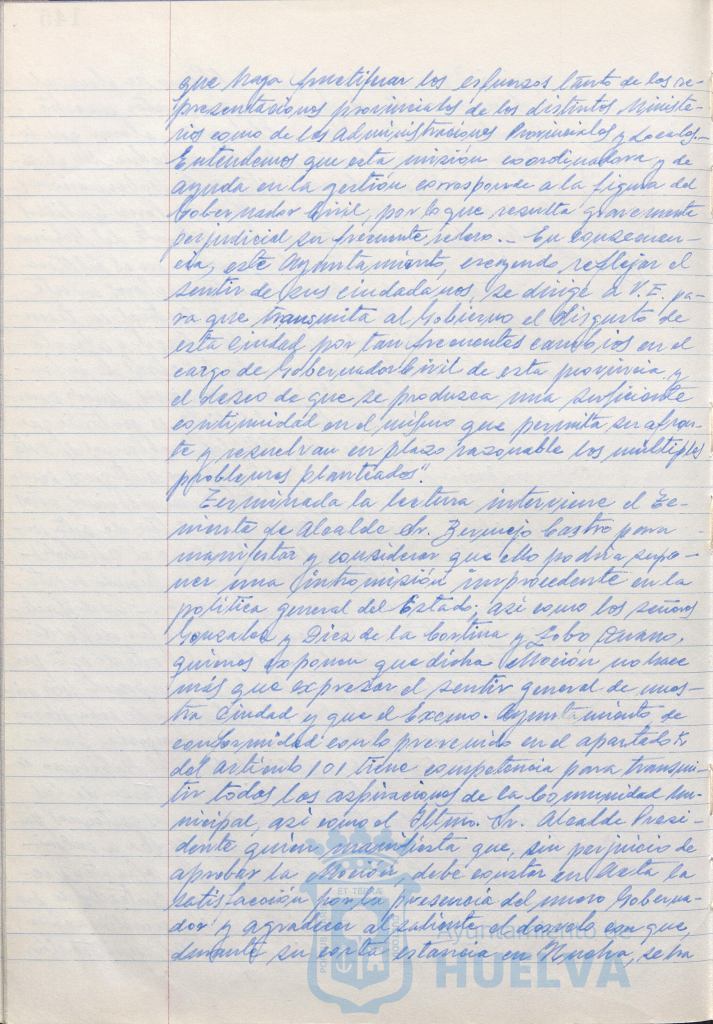 que haga fructificar los esfuerzos tanto de las re-
presentaciones provinciales de los distintos Ministe-
rios como de las Administraciones Provinciales y Locales.-
Entendemos que esta misión coordinadora y de
ayuda en la gestión corresponde a la figura del
Gobernador Civil, por lo que resulta gravemente
perjudicial su frecuente relevo.- En consecuen-
cia, este Ayuntamiento, creyendo reflejar el
sentir de sus ciudadanos, se dirige a V.E. pa-
ra que transmita al Gobierno el disgusto de
esta ciudad por tan frecuentes cambios en el
cargo de Gobernador Civil de esta provincia y
el deseo de que se produzca una suficiente
continuidad en el mismo que permita se afron-
te y resuelvan en plazo razonable los múltiples
problemas planteados".
Terminada la lectura interviene el Te-
niente de Alcalde Sr. Bermejo Castro para
manifestar y considerar que ello podría supo-
ner una intromisión improcedente en la
política general del Estado; así como los señores
González y Díez de la Cortina y Lobo
quienes exponen que dicha Moción no hace
más que expresar el sentir general de nues-
tra Ciudad y que el Excmo. Ayuntamiento de
conformidad con lo prevenido en el apartado
del artículo 101 tiene competencia para transmi-
tir todas las aspiraciones de la Comunidad Mu-
nicipal, así como el Iltmo. Sr. Alcalde Presi-
dente quien manifiesta que, sin perjuicio de
aprobar la Moción, debe constar en Acta la
satisfacción por la presencia del nuevo Goberna-
dor y agradecer al saliente el desvelo con que,
durante su corta estancia en Huelva, se ha
Ayuntamiento de
HUELVA